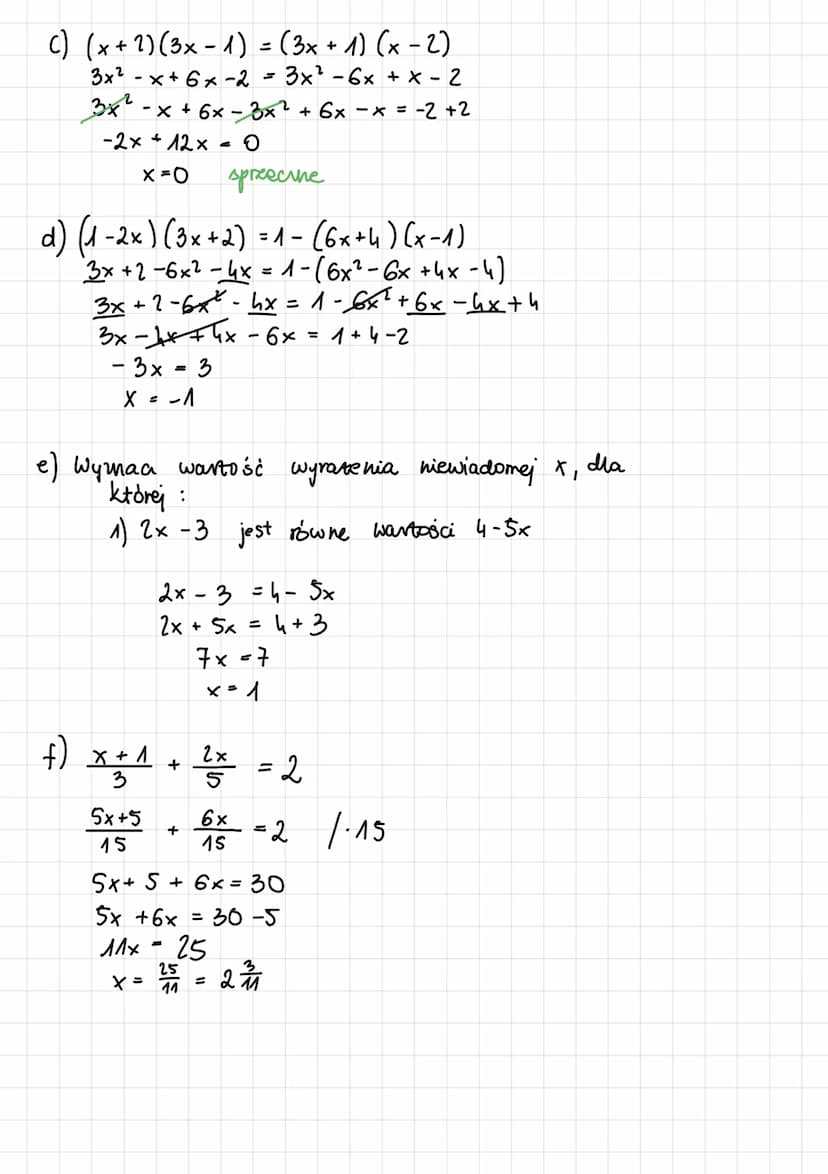 c) (x + 2)(3x - 1) = (3x + 1)(x - 2)
3x² - x + 6x - 2 = 3x² - 6x + x - 2
3x² - x + 6x - 3x² + 6x - x = -2 + 2
-2x + 12x = 0
x = 0 sprzeczne
d) (1 - 2x)(3x + 2) = 1 - (6x + 4)(x - 1)
3x + 2 - 6x² - 4x = 1 - (6x² - 6x + 4x - 4)
3x + 2 - 6x² - 4x = 1 - 6x² + 6x - 4x + 4
3x - 4x + 4x - 6x = 1 + 4 - 2
-3x = 3
x = -1
e) Wyznacz wartość wyrażenia niewiadomej x, dla
której :
1) 2x - 3 jest równe wartości 4 - 5x
2x - 3 = 4 - 5x
2x + 5x = 4 + 3
7x = 7
x = 1
f) \frac{x + 1}{3} + \frac{2x}{5} = 2
\frac{5x + 5}{15} + \frac{6x}{15} = 2 / · 15
5x + 5 + 6x = 30
5x + 6x = 30 - 5
11x = 25
x = \frac{25}{11} = 2\frac{3}{11}